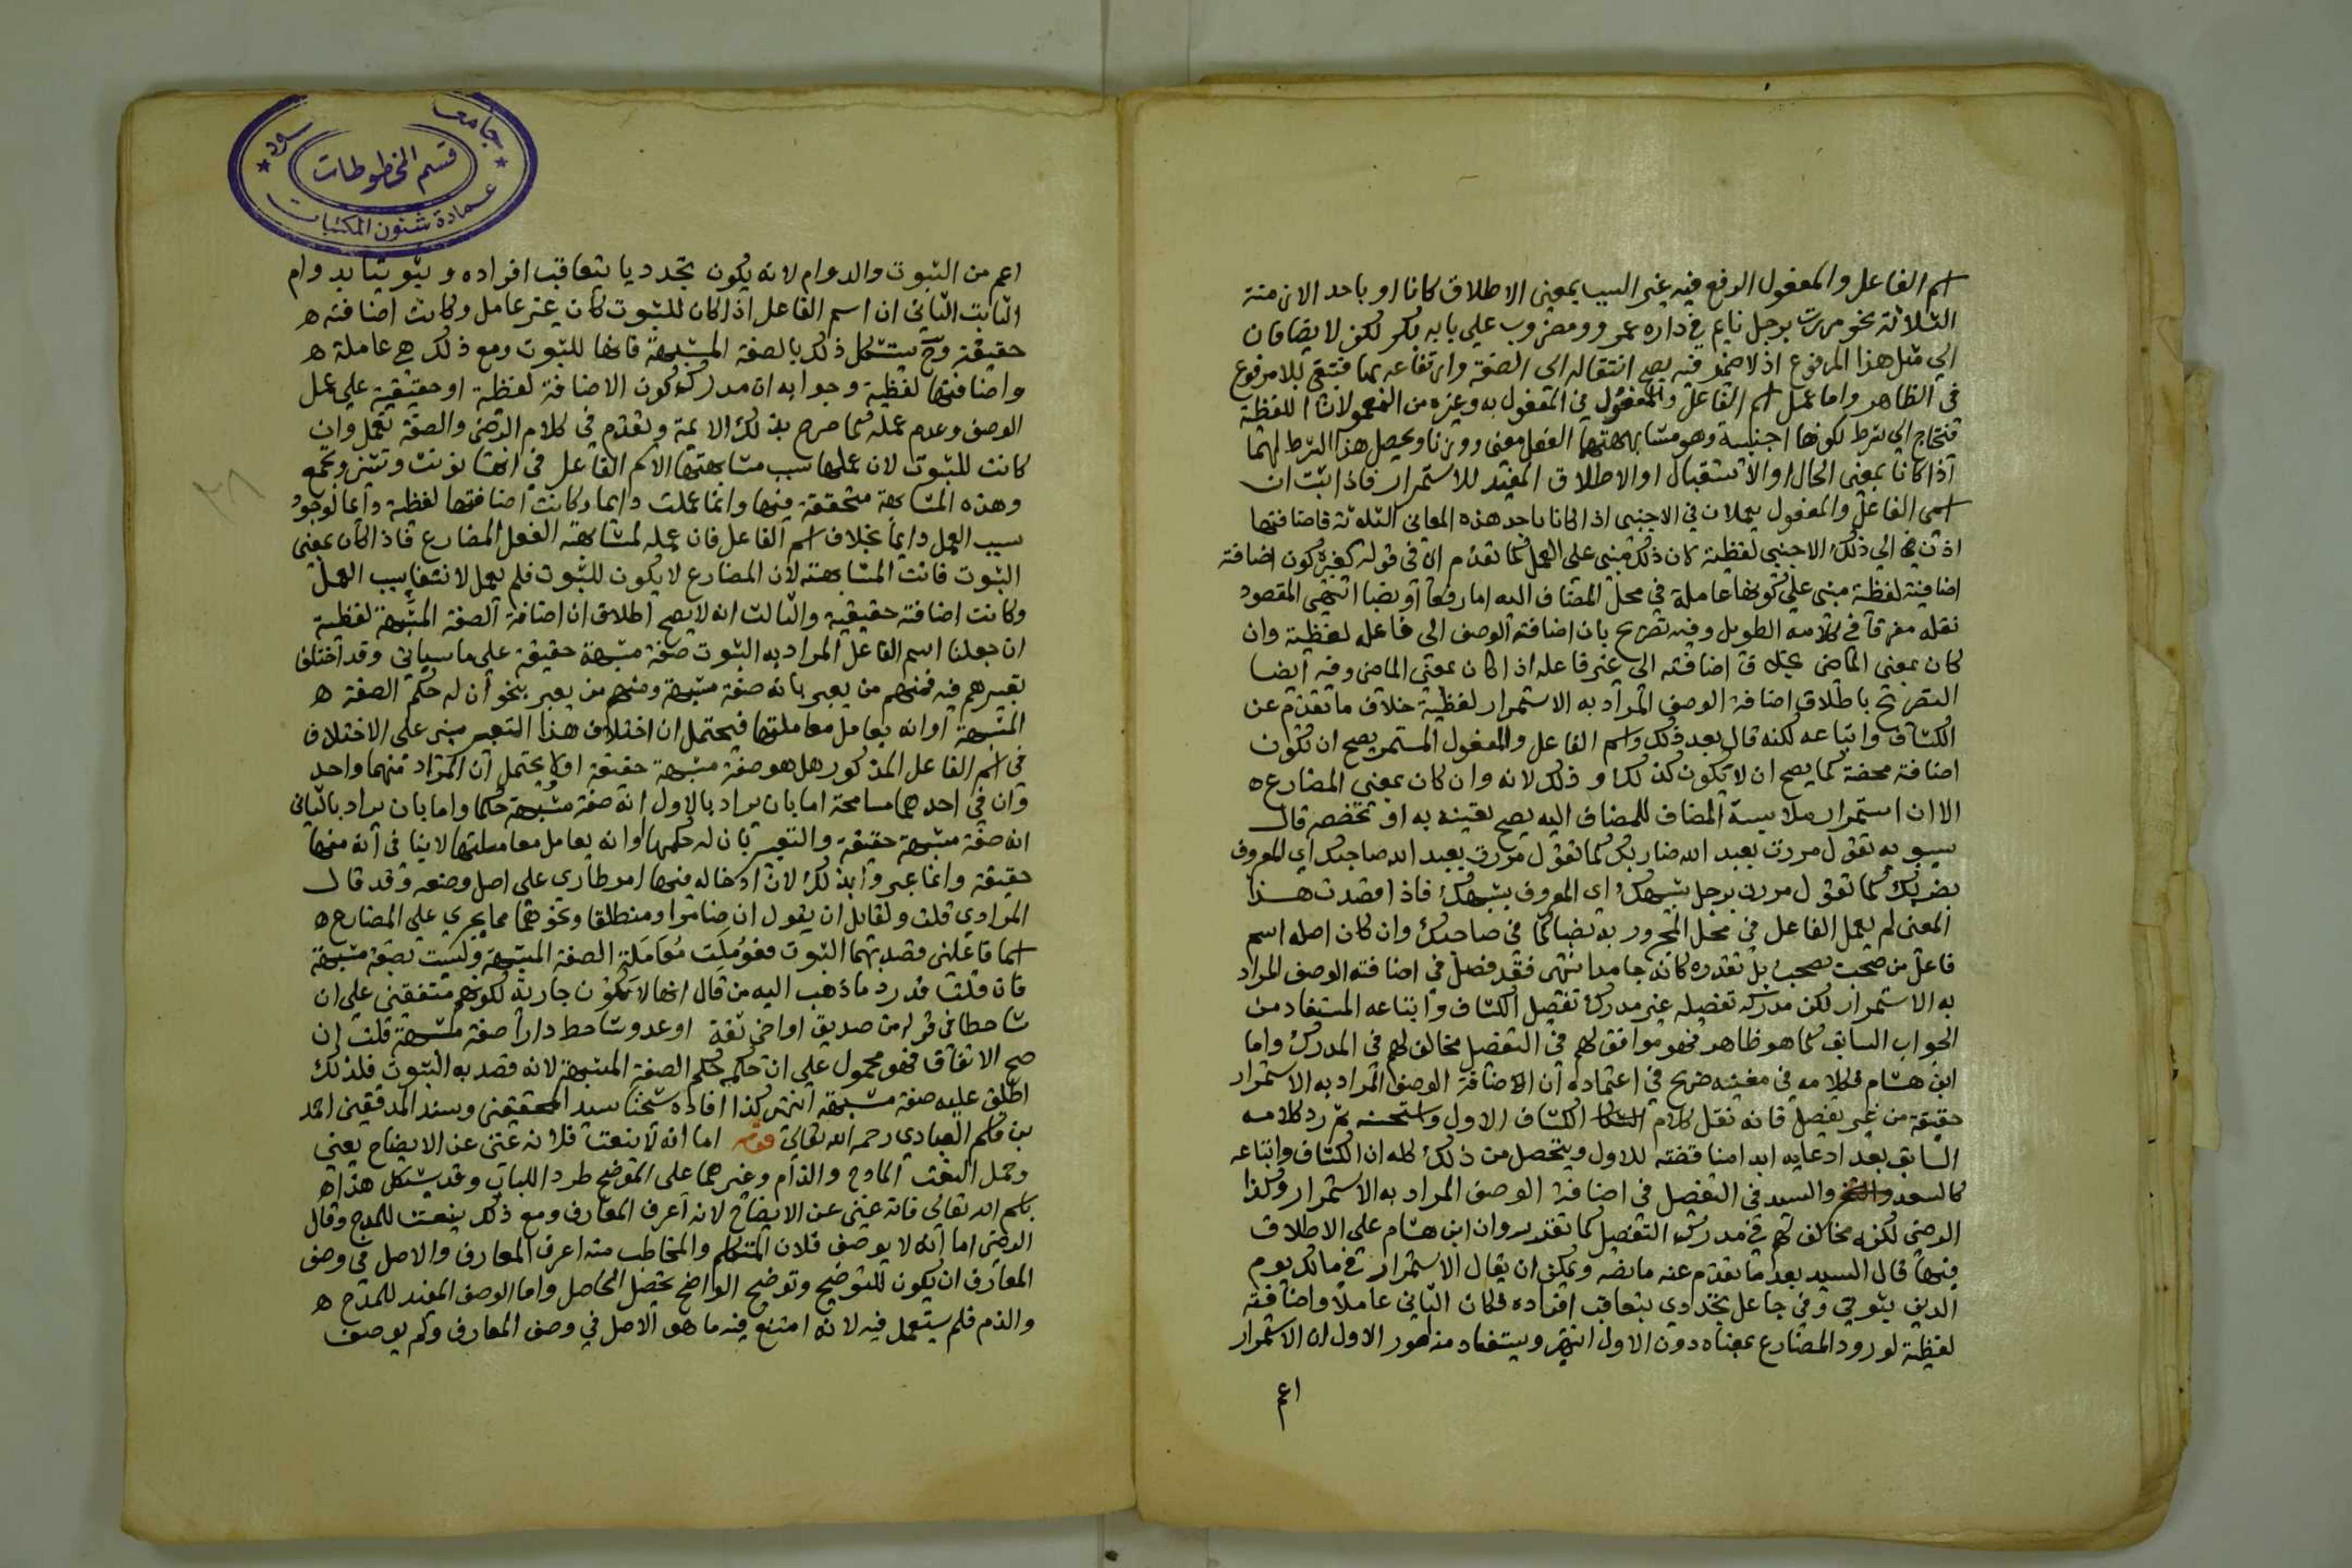 اسم الفاعل والمفعول الرفع فيه غير السبب بمعنى الاطلاق كانا او باحد الازمنة
الثلاثة نحو مررت برجل نايم في داره عمرو ومضروب على بابه بكر لكن لا يضافان
الى مثل هذا المرفوع اذ لا ضمير فيه يصح انتقاله الى الصفة وارتفاعه بها فتبقى بلا مرفوع
في الظاهر واما عمل اسم الفاعل والمفعول في المفعول به وغيره من المعمولات اللفظية
فتحتاج الى شرط لكونها اجنبية وهو مشابهتهما الفعل معنى ووزنا ويحصل هذا الشرط لهما
اذا كانا بمعنى الحال او الاستقبال او الاطلاق المفيد للاستمرار فاذا ثبت ان
اسمى الفاعل والمفعول يعملان في الاجنبى اذا كانا باحد هذه المعانى الثلاثة فاضافتهما
اذن الى ذلك الاجنبى لفظية كان ذلك مبنى على العمل كما تقدم الان في قوله كون اضافة
اضافته لفظية مبنى على كونها عاملة في محل المضاف اليه اما رفعا او نصبا انتهى المقصود
نقله مفرقا في كلامه الطويل وفيه تصريح بان اضافة الوصف الى فاعله لفظية وان
كان بمعنى الماضى بخلاف اضافته الى غير فاعله اذا كان بمعنى الماضى وفيه ايضا
التصريح باطلاق اضافة الوصف المراد به الاستمرار لفظية خلاف ما تقدم عن
الكشاف واتباعه لكنه قال بعد ذلك واسم الفاعل والمفعول المستمر يصح ان تكون
اضافته محضة كما يصح ان لا تكون كذلك وذلك لانه وان كان بمعنى المضارع ه
الا ان استمرار ملابسة المضاف للمضاف اليه يصح تعينه به او تخصصه قال
سيبويه تقول مررت بعبد الله ضاربك كما تقول مررت بعبد الله صاحبك اي المعروف
بضربك كما تقول مررت برجل شبهك اى المعروف بشبهك فاذا قصدت هذا
المعنى لم يعمل الفاعل في محل المجرور به نصبا كما في صاحبك وان كان اصله اسم
فاعل من صحب يصحب بل تقدره كانه جامد انتهى فقد فصل في اضافة الوصف المراد
به الاستمرار لكن مدركه تفصيله غير مدرك تفصيل الكشاف واتباعه المستفاد من
الجواب السابق كما هو ظاهر فهو موافق لهم في التفصيل مخالف لهم في المدرك واما
ابن هشام فكلامه في مغنيه صريح في اعتماده ان اضافة الوصف المراد به الاستمرار
حقيقة من غير تفصيل فانه نقل كلام الكشاف الاول واستحسنه ثم رد كلامه
السابق بعد ادعايه ابد امناقضته للاول ويتحصل من ذلك كله ان الكشاف واتباعه
كالسعد والسيد في التفصيل في اضافة الوصف المراد به الاستمرار وكذا
الرضى لكنه مخالف لهم في مدرك التفصيل كما تقدم وان ابن هشام على الاطلاق
فيها قال السيد بعد ما تقدم عنه ما نصه ويمكن ان يقال الاستمرار في مالك يوم
الدين ثبوتى وفي جاعل تجددي بتعاقب افراده فكان الثانى عاملا واضافته
لفظية لورود المضارع بمعناه دون الاول انتهى ويستفاد منه امور الاول ان الاستمرار
اعم
جامعة سعود
قسم المخطوطات
عمادة شئون المكتبات
اعم من الثبوت والدوام لانه يكون تجدديا بتعاقب افراده وثبوتيا بدوام
الثابت الثانى ان اسم الفاعل اذا كان للثبوت كان غير عامل وكانت اضافته ه
حقيقة وح يستشكل ذلك بالصفة المشبهة فانها للثبوت ومع ذلك هي عاملة ه
واضافتها لفظية وجوابه ان مدرك كون الاضافة لفظية او حقيقية على عمل
الوصف وعدم عمله كما صرح بذلك الايمة وتقدم في كلام الرضى والصفة تعمل وان
كانت للثبوت لان عملها بسبب مشابهتها لاسم الفاعل في انها تونث وتثنى وتجمع
وهذه المشابهة متحققة فيها وانما عملت دايما وكانت اضافتها لفظية دايما لوجود
سبب العمل دايما بخلاف اسم الفاعل فان عمله لمشابهته الفعل المضارع فاذا كان بمعنى
الثبوت فاتت المشابهة لان المضارع لا يكون للثبوت فلم يعمل لانتفا سبب العمل
وكانت اضافته حقيقية والثالث انه لا يصح اطلاق ان اضافة الصفة المشبهة لفظية
ان جعلنا اسم الفاعل المراد به الثبوت صفة مشبهة حقيقة على ما سياتى وقد اختلف
تعبيرهم فيه فمنهم من يعبر بانه صفة مشبهة ومنهم من يعبر بنحو ان له حكم الصفة ه
المشبهة او انه يعامل معاملتها فيحتمل ان اختلاف هذا التعبير مبنى على الاختلاف
في اسم الفاعل المذكور هل هو صفة مشبهة حقيقة اولا ويحتمل ان المراد منهما واحد
وان في احدهما مسامحة اما بان يراد بالاول انه صفة مشبهة حكما واما بان يراد بالثانى
انه صفة مشبهة حقيقة والتعبير بان له حكمها او انه يعامل معاملتها لا ينافى انه منها
حقيقة وانما عبروا بذلك لان ادخاله فيها امر طارى على اصل وضعه وقد قال
المرادي قلت ولقايل ان يقول ان ضامرا ومنطلقا ونحوهما مما يجري على المضارع ه
اسما فاعلين قصد بهما الثبوت فعومُلت مُعَامَلة الصفة المشبهة وليست بصفة مشبهة
فان قلت قد رد ما ذهب اليه من قال انها لا تكون جارية لكونهم متفقين على ان
شاحطا في قوله من صديق او اخى ثقة او عدو شاحط دارا صفة مشبهة قلت ان
صح الاتفاق فهو محمول على ان حكمه حكم الصفة المشبهة لانه قصد به الثبوت فلذلك
اطلق عليه صفة مشبهة انتهى كذا افاده شيخنا سيد المحققين وسند المدققين احمد
بن قاسم العبادي رحمه الله تعالى قوله اما انه لا ينعت فلانه غنى عن الايضاح يعني
وحمل النعت المادح والذام وغيرهما على الموضح طردا للباب وقد يشكل هذا ه
باسم الله تعالى فانه غنى عن الايضاح لانه اعرف المعارف ومع ذلك ينعت للمدح وقال
الرضى اما انه لا يوصف فلان المتكلم والمخاطب منه اعرف المعارف والاصل في وصف
المعارف ان يكون للتوضيح وتوضيح الواضح تحصيل الحاصل واما الوصف المفيد للمدح ه
والذم فلم يستعمل فيه لانه امتنع فيه ما هو الاصل في وصف المعارف ولم يوصف